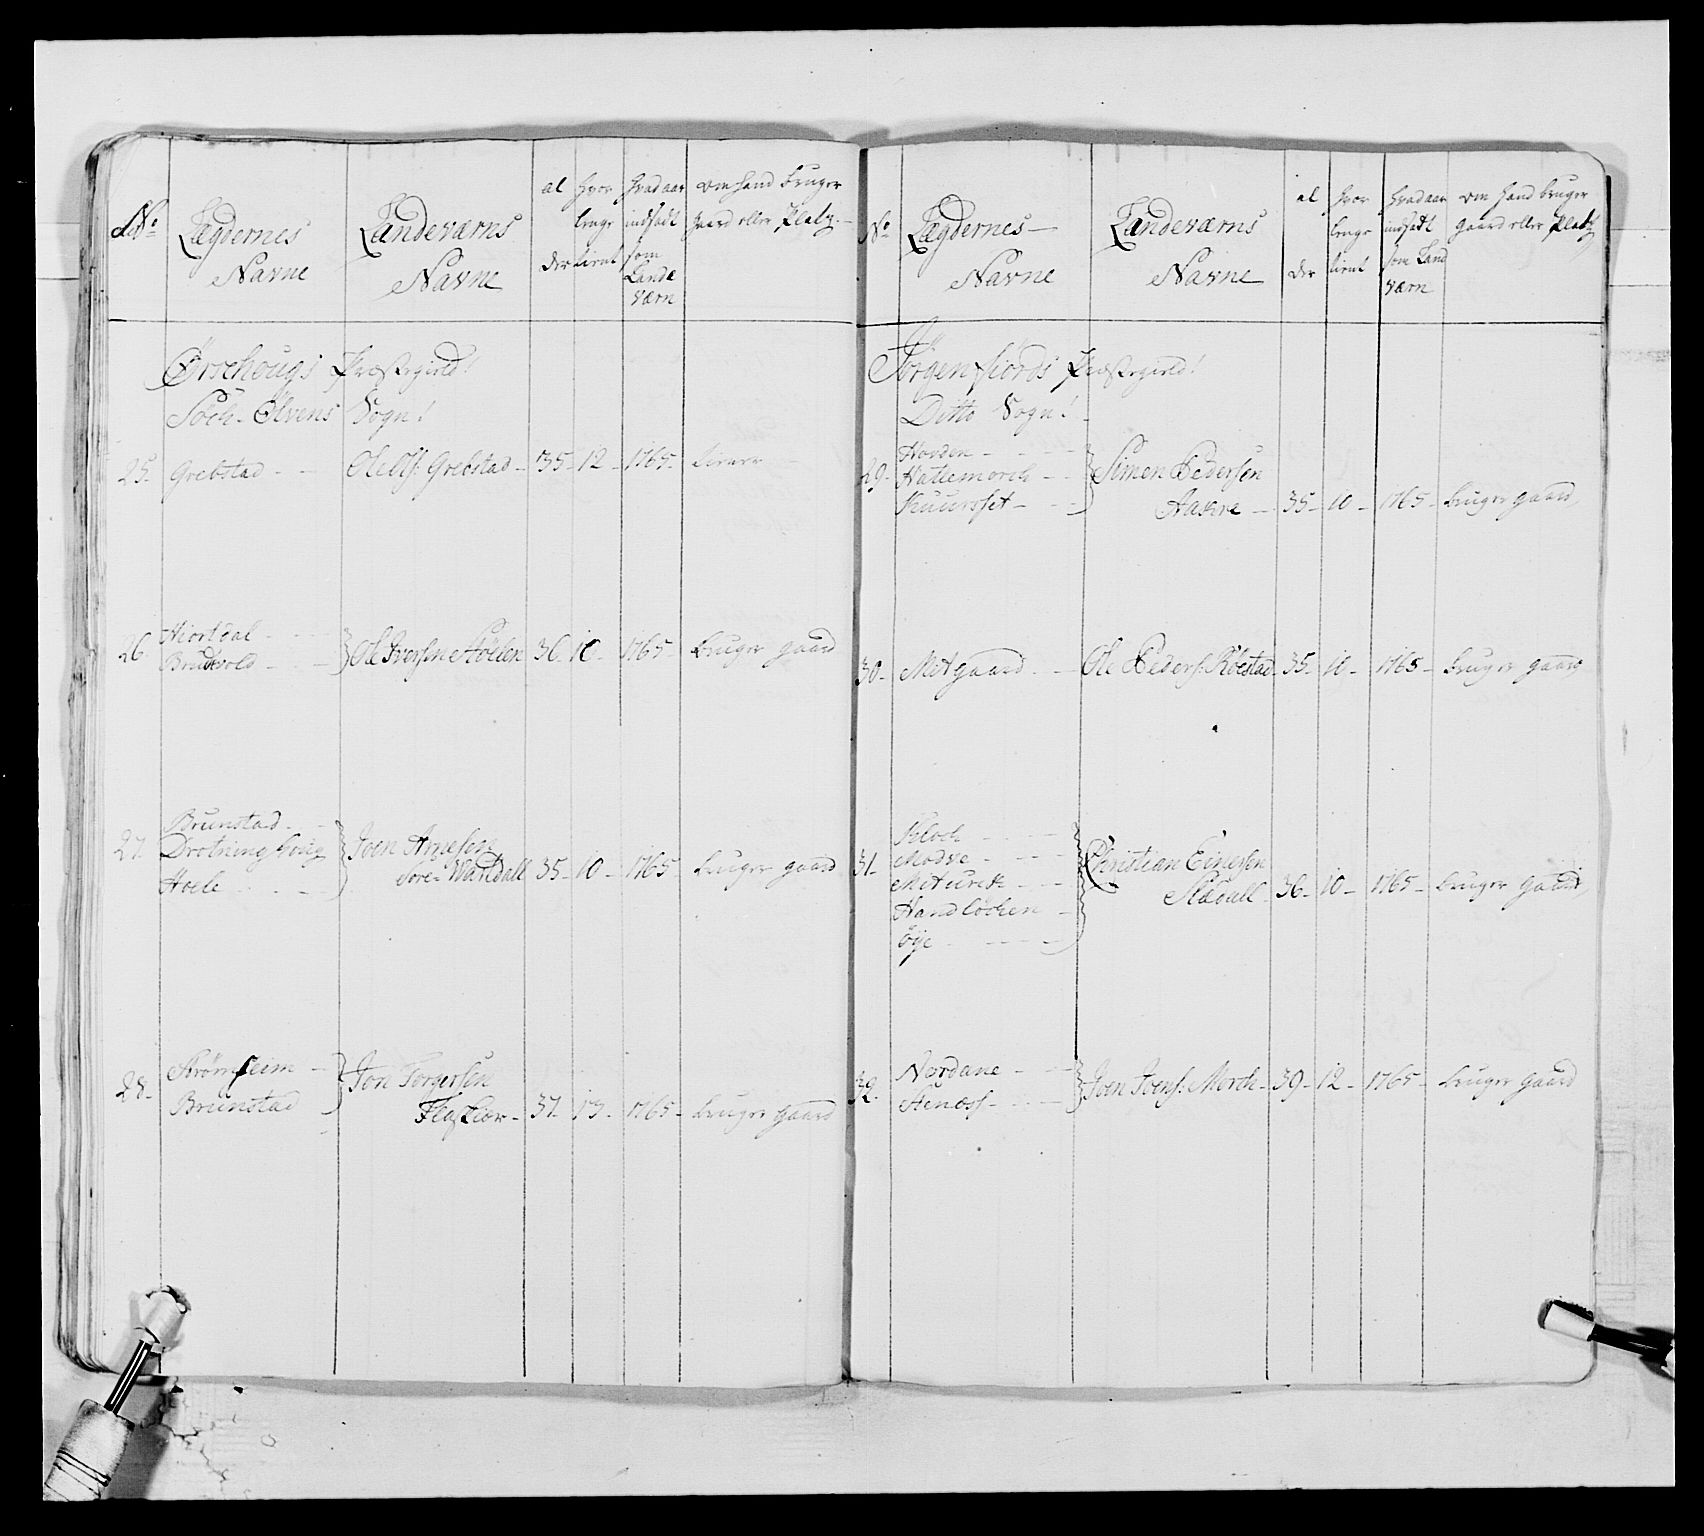 No Lægdernes Navne Landeværns Navne al der hvor lenge tient hvad aar indsadt som Lande værn om hand bruger gaard eller Platz
Ørschougs Præstegield!
Søch-Ølvens Sogn!
25. Grebstad - Ole Ols: Grebstad - 35 - 12 - 1765 - tiener
26. Hiortdal
Brudevold } Ole Iversen Høelen 36. 10 - 1765 - bruger gaard
27. Brunstad
Drotninghoug
Hoele } Joen Arnesen
Søre-Vartdall 35 - 10 - 1765 - bruger gaard
28. Strømheim
Brunstad } Jon Torgersen
Flaskior - 37 - 13 - 1765 - bruger gaard
No Lægdernes Navne Landeværns Navne al der hvor lenge tient hvad aar indsadt som Land værn om hand bruger gaard eller Platz
Jørgenfiords Præstegield!
Ditto Sogn!
29. Hovden
Hatlemarch
Kuursset } Simen Pedersen
Aakre - 35 - 10 - 1765 - bruger gaard
30 - Melgaard - Ole Peders: Kolstad 35 - 10 - 1765 - bruger gaard
31. Kloch
Modve

Handløchen
Øye } Christian Einersen
36 - 10 - 1765 - bruger gaard
32. Nordane
Stenæss } Joen Joens: Morch - 39 - 12 - 1765 - bruger gaard